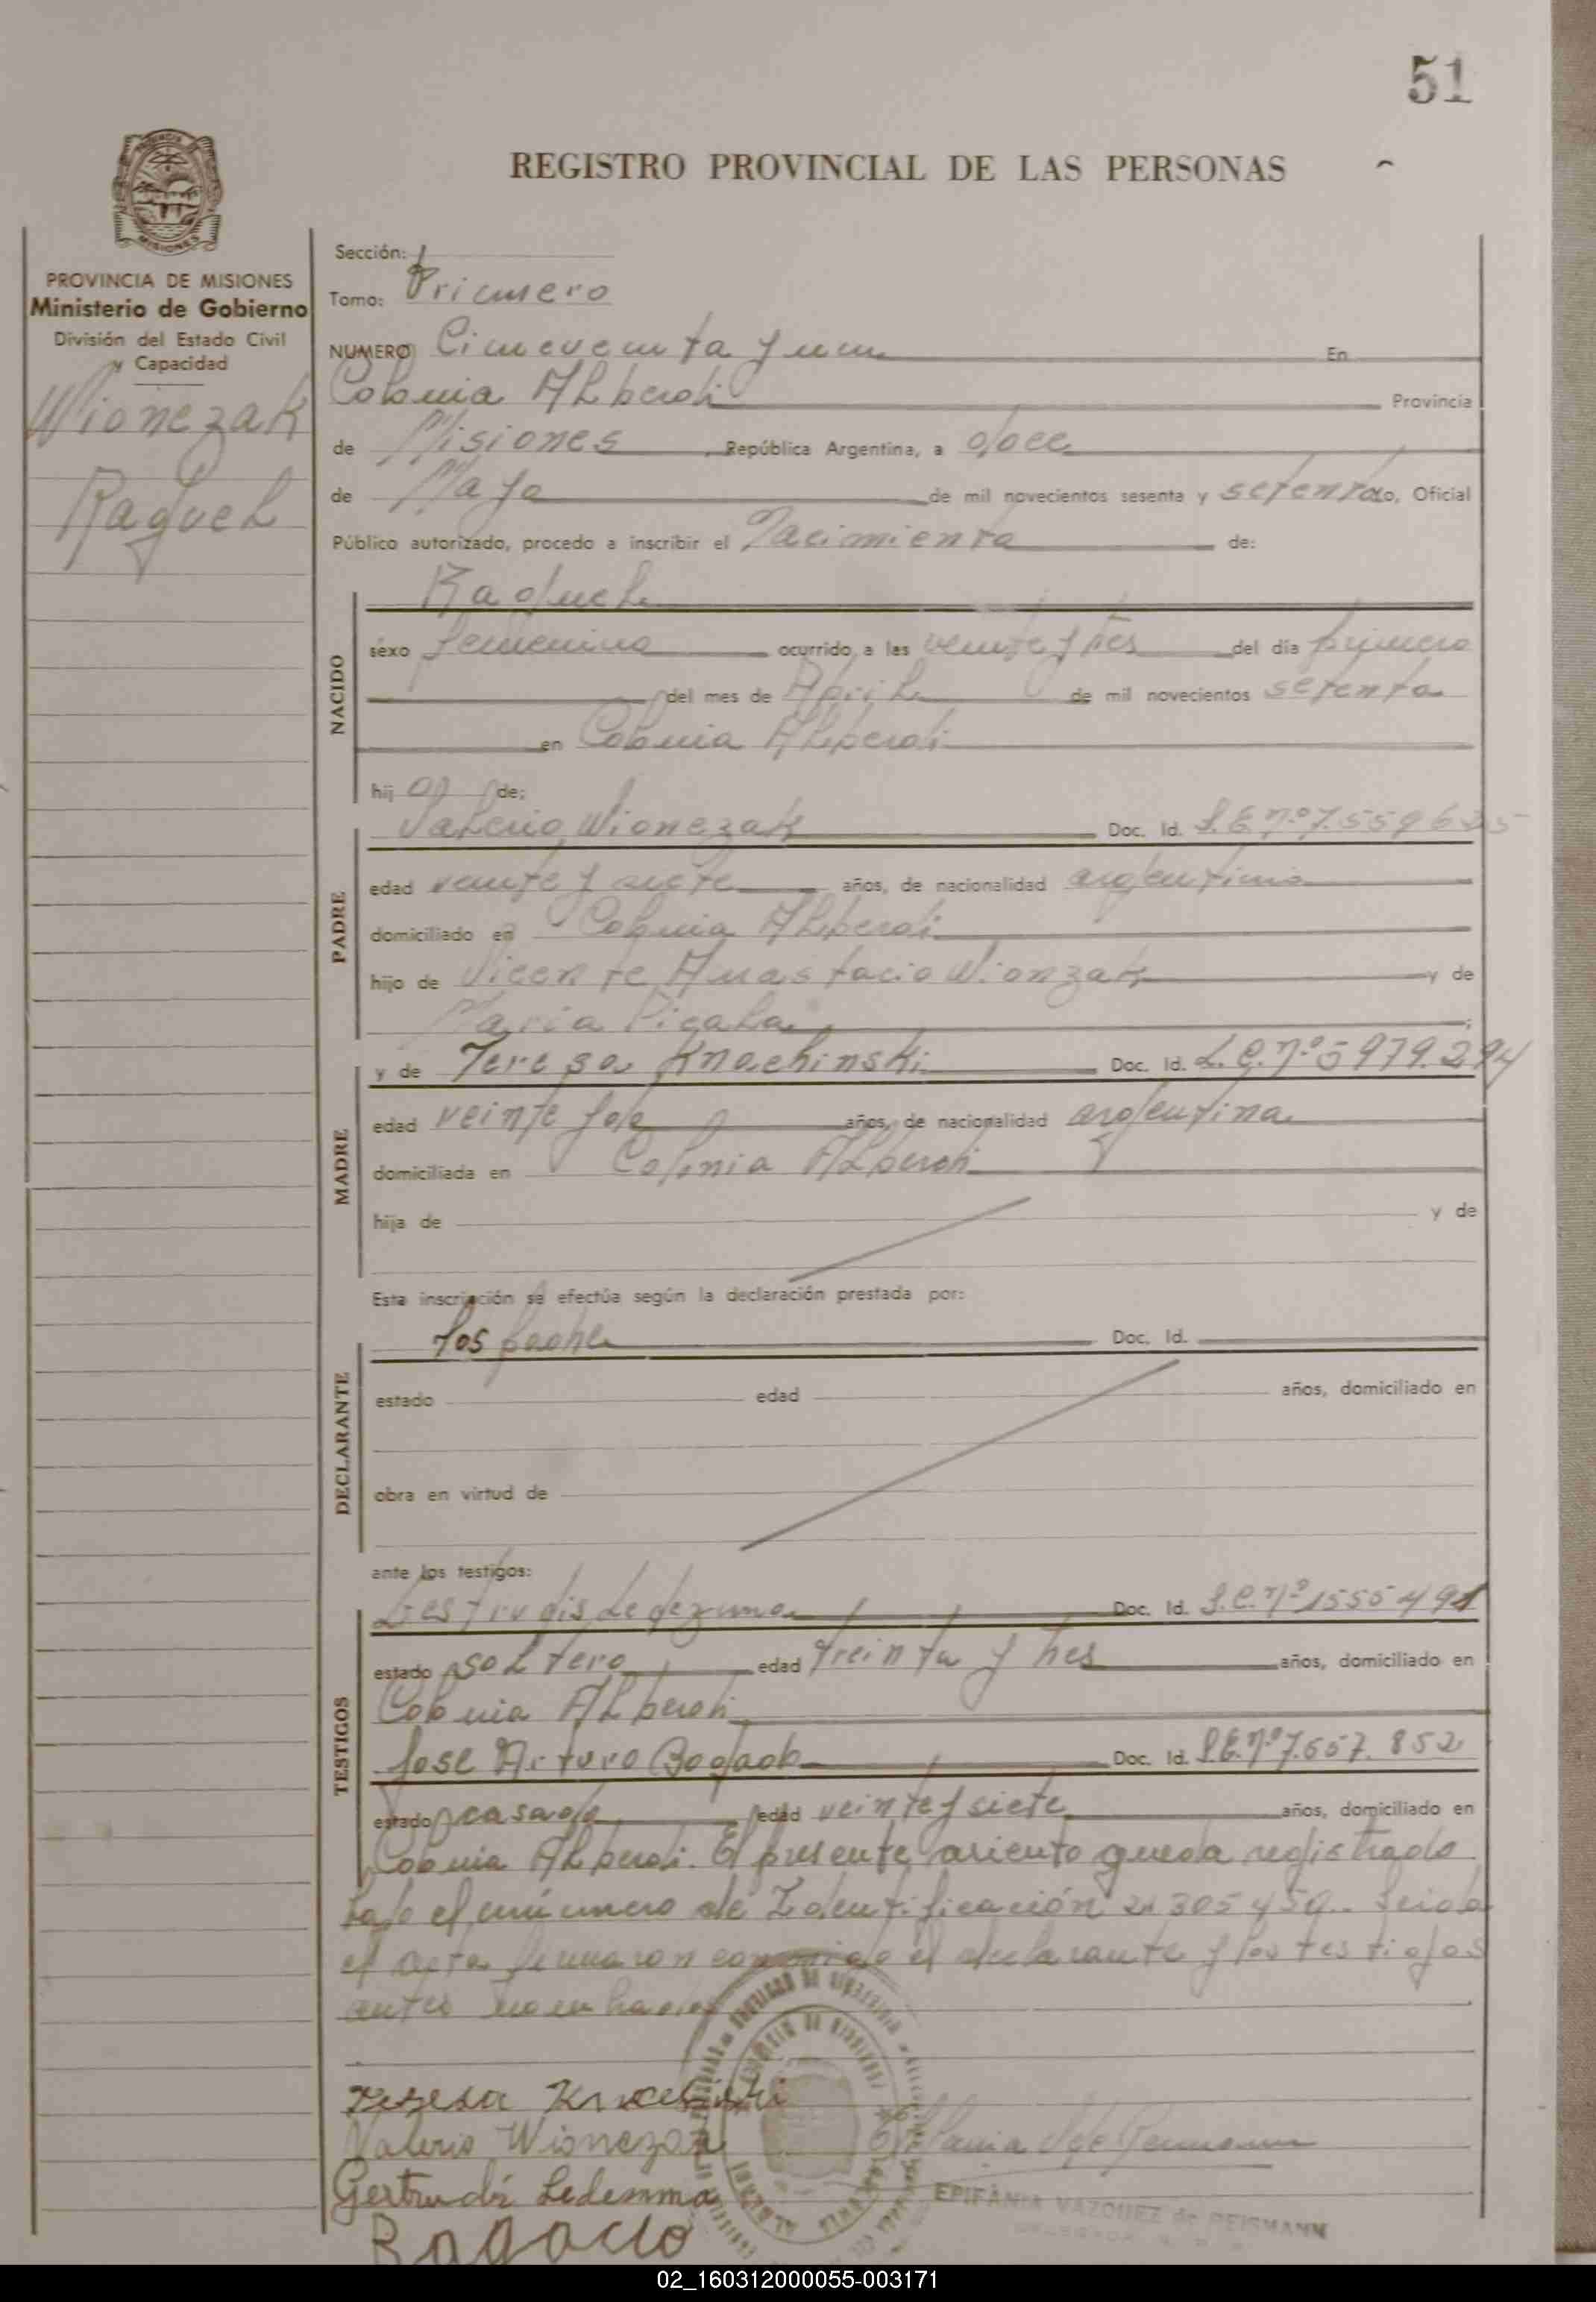 51
REGISTRO PROVINCIAL DE LAS PERSONAS
PROVINCIA DE MISIONES
Ministerio de Gobierno
División del Estado Civil
y Capacidad
Wionezak
Raquel
Sección:
Tomo: Primero
NUMERO Cincuenta y un En
Colonia Alberdi Provincia
de Misiones, República Argentina, a doce
de Mayo de mil novecientos sesenta y setenta yo, Oficial
Público autorizado, procedo a inscribir el Nacimiento de:
NACIDO
Raquel
sexo femenino ocurrido a las veinte y tres del día primero
del mes de Abril de mil novecientos setenta
en Colonia Alberdi
hij a de:
PADRE
Valerio Wionezak Doc. Id. L.E.nº7.559635
edad veinte y siete años, de nacionalidad argentina
domiciliado en Colonia Alberdi
hijo de Vicente Anastacio Wionzak y de
Maria Pigala;
MADRE
y de Teresa Knachinski Doc. Id. L.C.nº5979.294
edad veinte y años, de nacionalidad argentina
domiciliada en Colonia Alberdi
hija de y de
Esta inscripción se efectúa según la declaración prestada por:
DECLARANTE
los padre Doc. Id.
estado edad años, domiciliado en
obra en virtud de
ante los testigos:
TESTIGOS
Ledezma Doc. Id. L.C.nº1555491
estado soltero edad treinta y tres años, domiciliado en
Colonia Alberdi
Jose Arturo Bogado Doc. Id. L.E.nº7.657.852
estado casado edad veinte y siete años, domiciliado en
Colonia Alberdi. El presente asiento queda registrado
bajo el número de Identificación 21305450.. Leida
el acta firmaron conmigo el declarante y los testigos
antes nombrados
Teresa Knachinski
Valerio Wionezak
Gertrudi Ledesma
Bogado
EPIFANIA VAZQUEZ de REISMANN
02_160312000055-003171